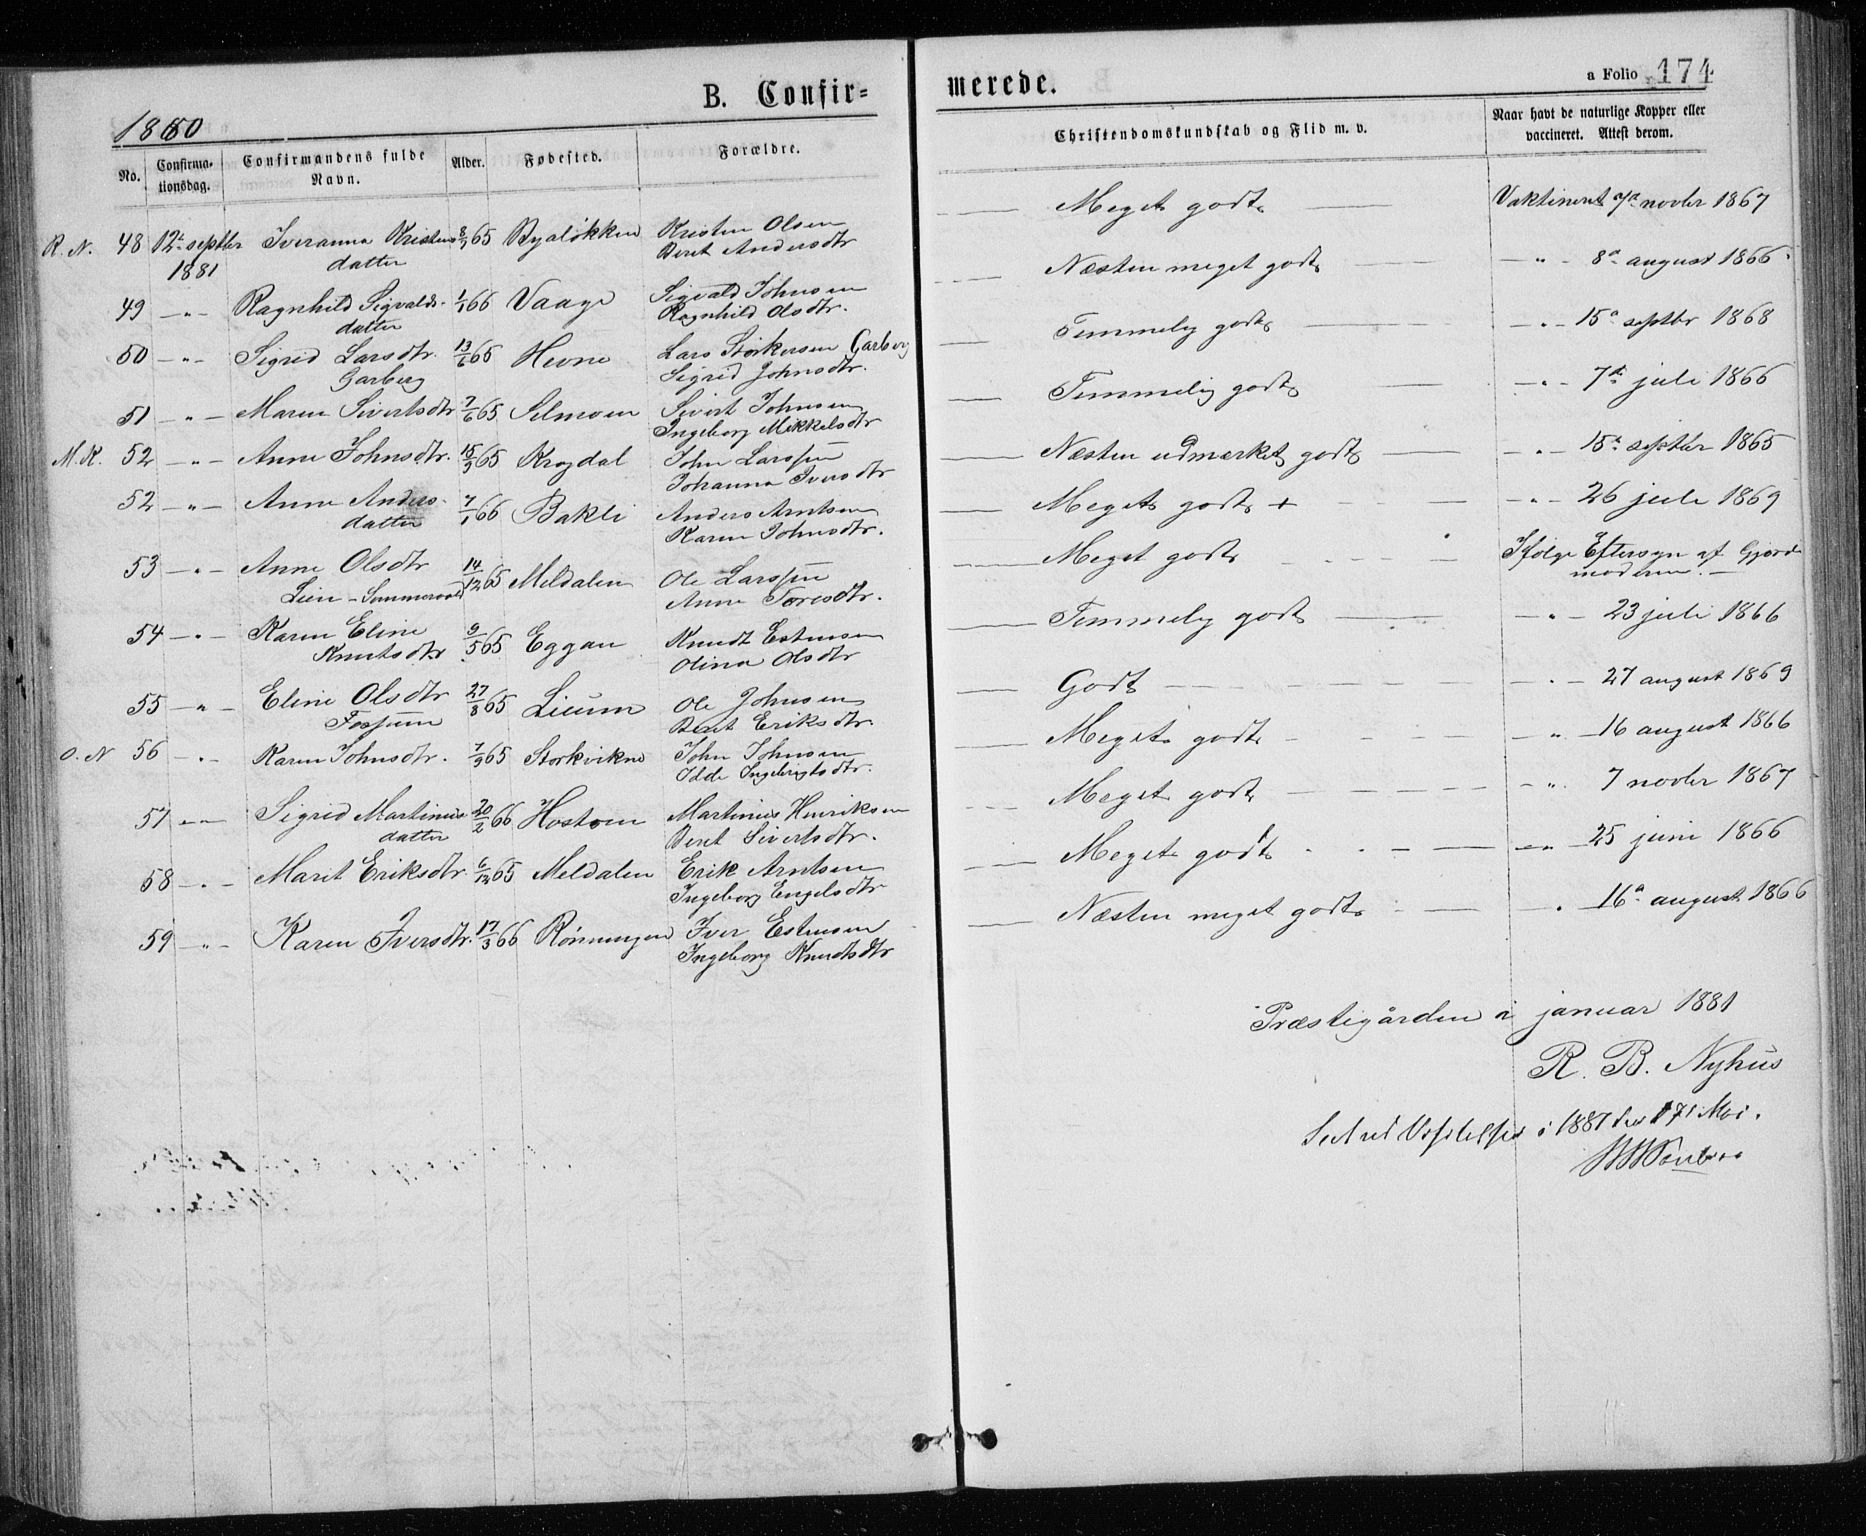 B. Confir=
merede.
a Folio 174
1880
No.
Confirma-
tionsdag.
Confirmandens fulde
Navn.
Alder.
Fødested.
Forældre.
Christendomskundskab og Flid m. v.
Naar havt de naturlige Kopper eller
vaccineret. Attest derom.
R. N. 48 12te septbr Iveranna Kristens 8/7 65 Byaløkken Kristen Olsen
1881 datter Beret Andersdtr
Meget godt Vaktineret 7a novbr 1867
49 -"- Ragnhild Sigvalds- 1/1 66 Vaage Sigvald Johnsen
datter Ragnhild Olsdtr.
Næsten meget godt -"- 8a august 1866
50 -"- Sigrid Larsdtr. 13/6 65 Hevne Lars Størkersen Garberg
Garberg Sigrid Johnsdtr.
Temmelig godt -"- 15a septbr 1868
51 -"- Maren Sivertsdtr 7/6 65 Selmoen Sivert Johnsen
Ingeborg Mikkelsdtr
Temmelig godt -"- 7de juli 1866
M. K. 52 -"- Anne Johnsdtr. 15/3 65 Krogdal John Larssen
Johanna Iversdtr
Næsten udmærket godt -"- 15a septbr 1865
52 -"- Anne Anders- 7/1 66 Bakli Anders Arntsen
datter Karen Johnsdtr.
Meget godt + -"- 26 juli 1869
53 -"- Anne Olsdtr 14/12 65 Meldalen Ole Larssen
Lien - Sommervold Anne Toresdtr.
Meget godt Ifølge Eftersyn af Gjord-
moderen.
54 -"- Karen Eline 9/5 65 Eggan Knudt Estensen
Knutsdtr Olina Olsdtr
Temmelig godt -"- 23 juli 1866
55 -"- Eline Olsdtr 27/8 65 Lium Ole Johnsen
Fossum Beret Eriksdtr.
Godt -"- 27 august 1869
O. N 56 -"- Karen Johnsdtr. 7/9 65 Storkvikne John Johnsen
Idde Ingebrigtsdtr.
Meget godt -"- 16 august 1866
57 -"- Sigrid Martinius 20/2 66 Hostoen Martinius Henriksen
datter Beret Sivertsdtr.
Meget godt -"- 7 novbr 1867
58 -"- Marit Eriksdtr 6/12 65 Meldalen Erik Arntsen
Ingeborg Engelsdtr
Meget godt -"- 25 juni 1866
59 -"- Karen Iversdtr. 17/3 66 Rønningen Iver Estensen
Ingeborg Knudtsdtr
Næsten meget godt -"- 16a august 1866
Præstegården i januar 1881
R. B. Nyhus
Seet ved Visitatsen i 1881 den 17/ Mai.